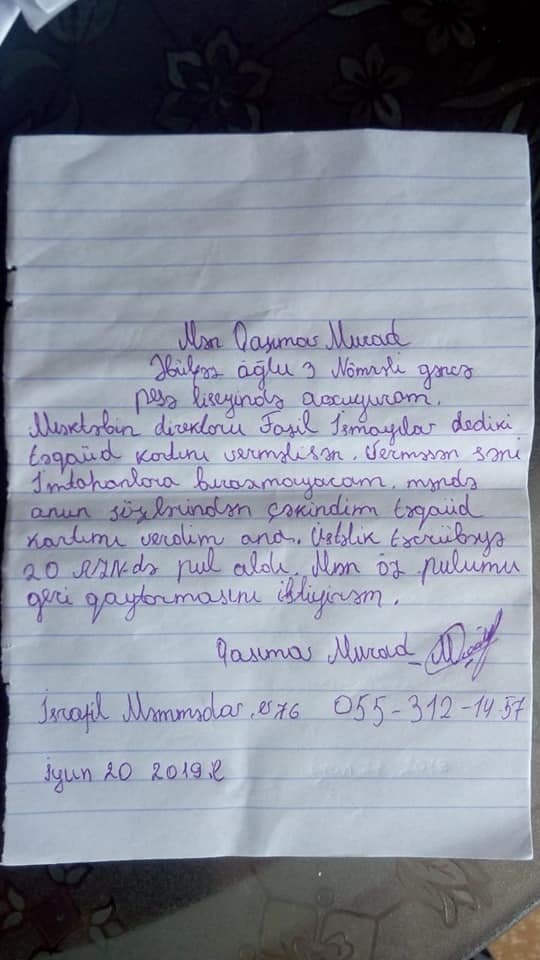 Mən Qasımov Murad
Əbülfəz oğlu 3 Nömrəli gəncə
peşə liseyində oxuyuram.
Məktəbin direktoru Fazil İsmayılov dediki
təqaüd kartını verməlisən. Verməsən səni
İmtahanlara buraxmayacam. məndə
onun sözlərindən çəkindim təqaüd
kartımı verdim ona. Üstəlik təcrübəyə
20 AZN də pul aldı. Mən öz pulumu
geri qaytarmasını istiyirəm.
Qasımov Murad
İsrafil Məmmədov. ev 76 055-312-14-57
iyun 20 2019.il